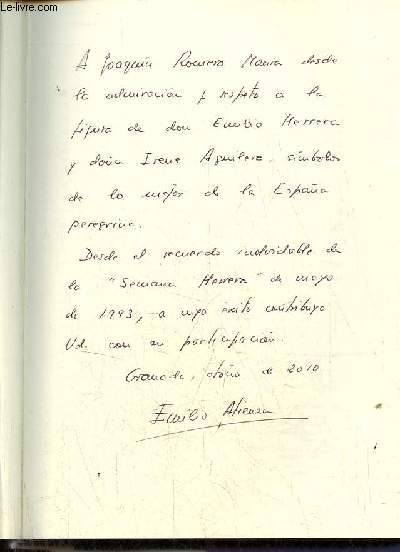 A Joaquín Romero Maura desde
la admiración y respeto a la
figura de don Emilio Herrera
y doña Irene Aguilera, símbolos
de lo mejor de la España
peregrina.
Desde el recuerdo inolvidable de
la "Semana Herrera" de mayo
de 1993, - a cuyo éxito contribuyo
Vd. con su participación.
Granada, otoño de 2010
Emilio Atienza
le-livre.com